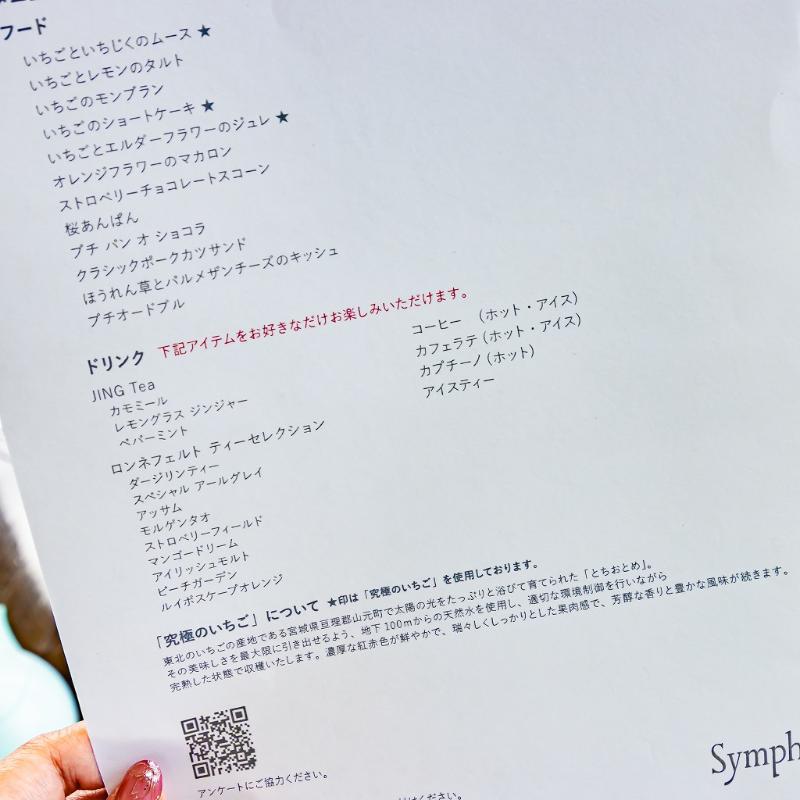 フード
いちごといちじくのムース ★
いちごとレモンのタルト
いちごのモンブラン
いちごのショートケーキ ★
いちごとエルダーフラワーのジュレ ★
オレンジフラワーのマカロン
ストロベリーチョコレートスコーン
桜あんぱん
プチ パン オ ショコラ
クラシックポークカツサンド
ほうれん草とパルメザンチーズのキッシュ
プチオードブル
ドリンク 下記アイテムをお好きなだけお楽しみいただけます。
JING Tea
カモミール
レモングラス ジンジャー
ペパーミント
ロンネフェルト ティーセレクション
ダージリンティー
スペシャル アールグレイ
アッサム
モルゲンタオ
ストロベリーフィールド
マンゴードリーム
アイリッシュモルト
ピーチガーデン
ルイボスケープオレンジ
コーヒー （ホット・アイス）
カフェラテ（ホット・アイス）
カプチーノ（ホット）
アイスティー
「究極のいちご」について ★印は「究極のいちご」を使用しております。
東北のいちごの産地である宮城県亘理郡山元町で太陽の光をたっぷりと浴びて育てられた「とちおとめ」。
その美味しさを最大限に引き出せるよう、地下100mからの天然水を使用し、適切な環境制御を行いながら
完熟した状態で収穫いたします。濃厚な紅赤色が鮮やかで、瑞々しくしっかりとした果肉感で、芳醇な香りと豊かな風味が続きます。
アンケートにご協力ください。
Symph